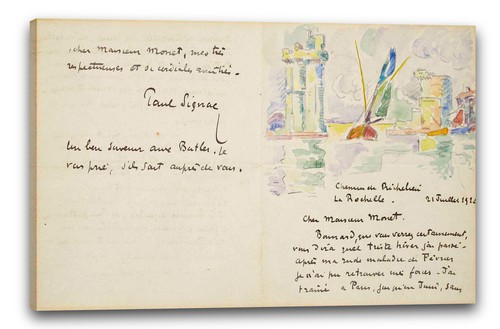 cher Monsieur Monet, mes très
respectueuses et si cordiales amitiés.
Paul Signac
Un bon souvenir aux Butler, je
vous prie, s'ils sont auprès de vous.
Chemin de Richelieu
La Rochelle. 21 Juillet
Cher Monsieur Monet.
Bonnard, que vous verrez certainement,
vous dira quel triste hiver j'ai passé.
après ma rude maladie de Février
je n'ai pu retrouver mes forces. J'ai
traîné à Paris, jusqu'en Juin, sans